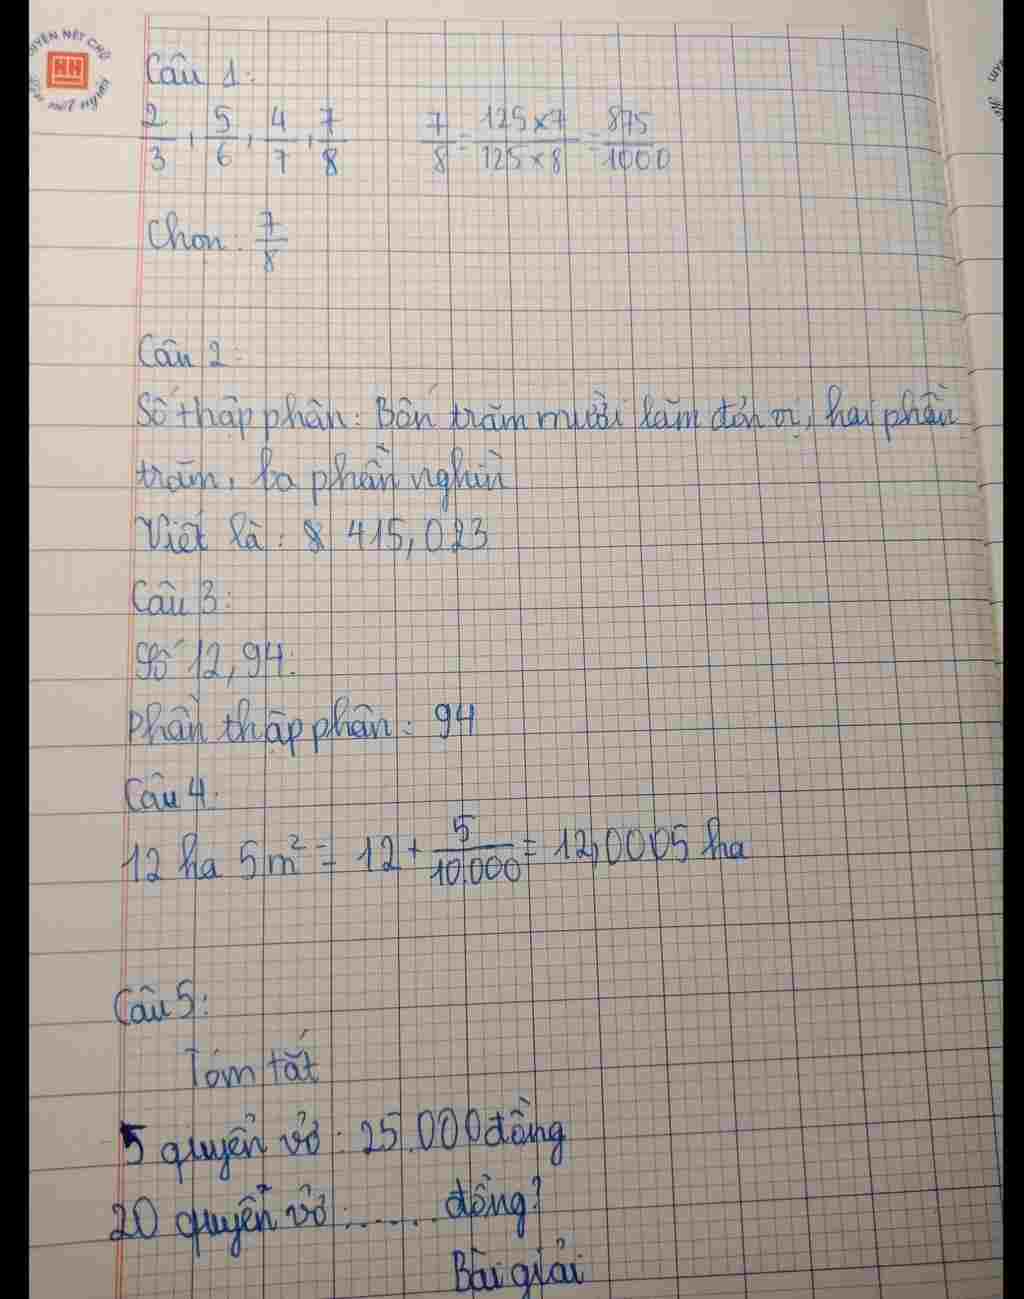 UYỆN NÉT CHỮ
HH
Câu 1:
2/3, 5/6, 4/7, 7/8    7/8 = 125×7/125×8 = 875/1000
Chọn. 7/8
Câu 2:
Số thập phân: Bốn trăm mười lăm đơn vị, hai phần
trăm, ba phần nghìn
Viết là: 415,023
Câu 3:
Số 12,94.
Phần thập phân: 94
Câu 4:
12 ha 5m² = 12 + 5/10.000 = 12,0005 ha
Câu 5:
Tóm tắt
5 quyển vở: 25.000 đồng
20 quyển vở:...... đồng?
Bài giải